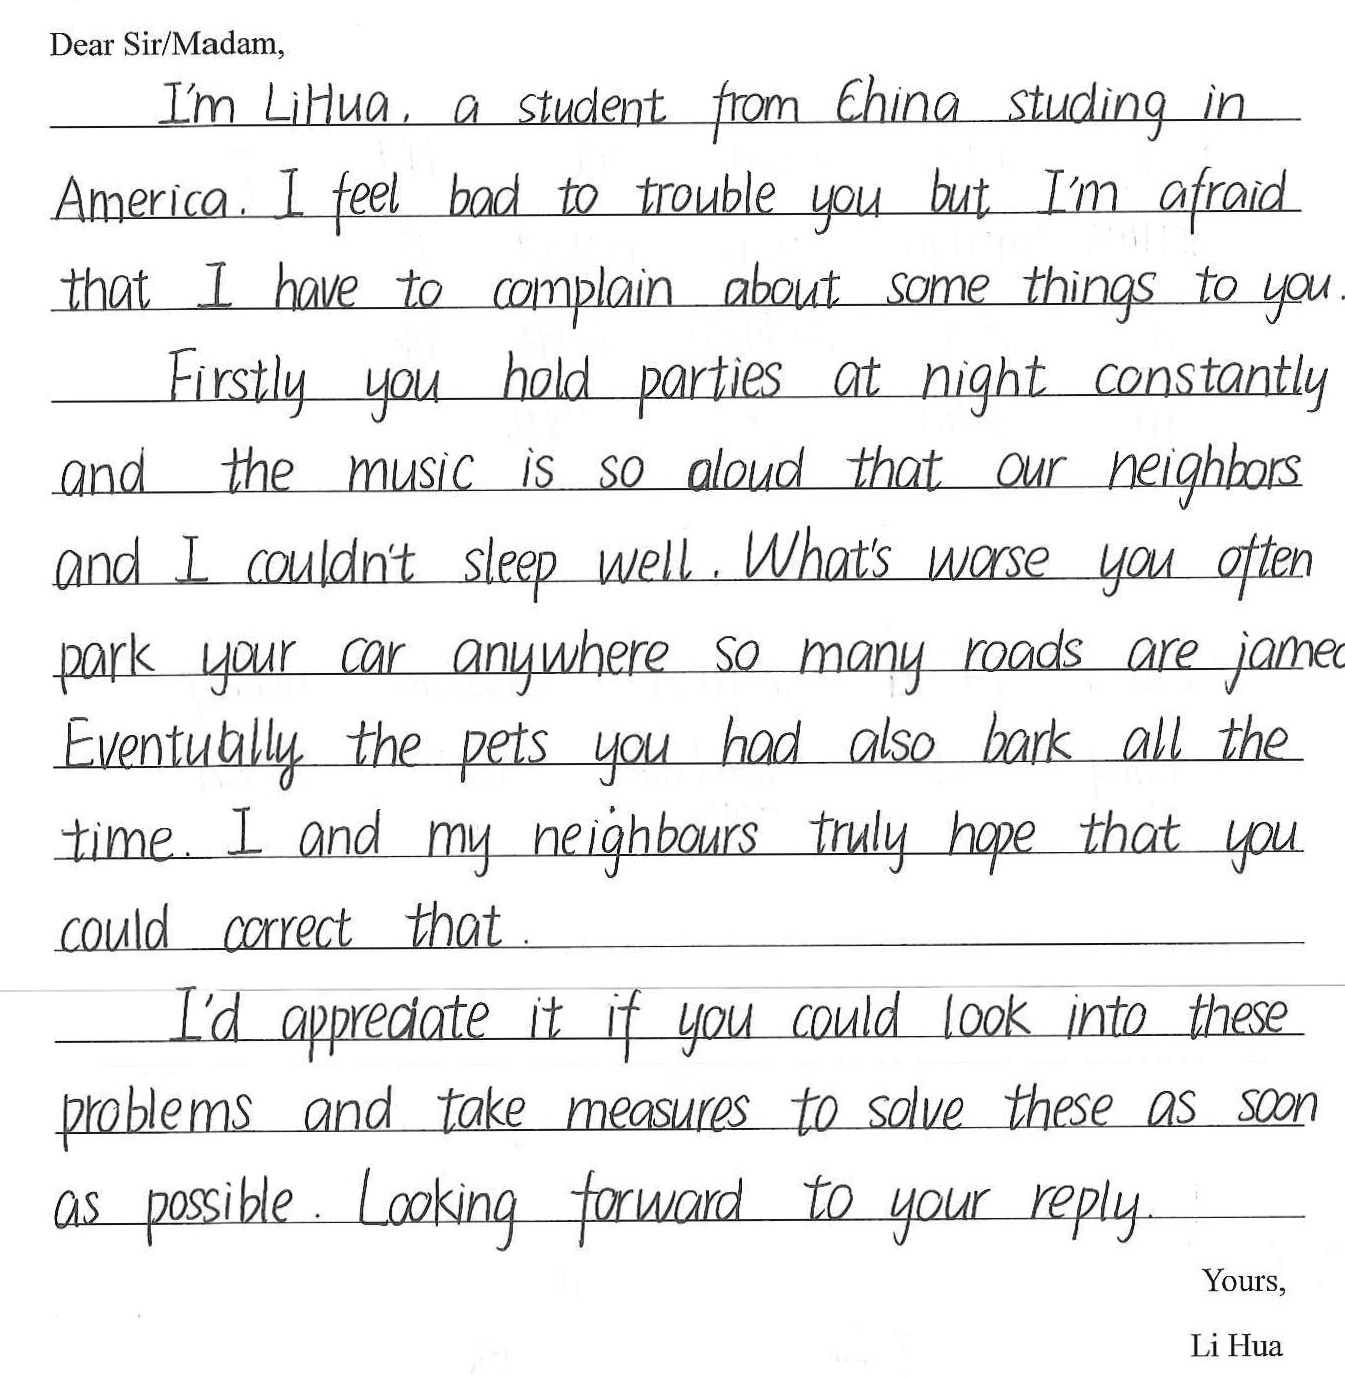 Dear Sir/Madam,
I'm LiHua, a student from China studing in
America. I feel bad to trouble you but I'm afraid
that I have to complain about some things to you.
Firstly you hold parties at night constantly
and the music is so aloud that our neighbors
and I couldn't sleep well. What's worse you often
park your car anywhere so many roads are jamed
Eventually the pets you had also bark all the
time. I and my neighbours truly hope that you
could correct that.
I'd appreciate it if you could look into these
problems and take measures to solve these as soon
as possible. Looking forward to your reply.
Yours,
Li Hua